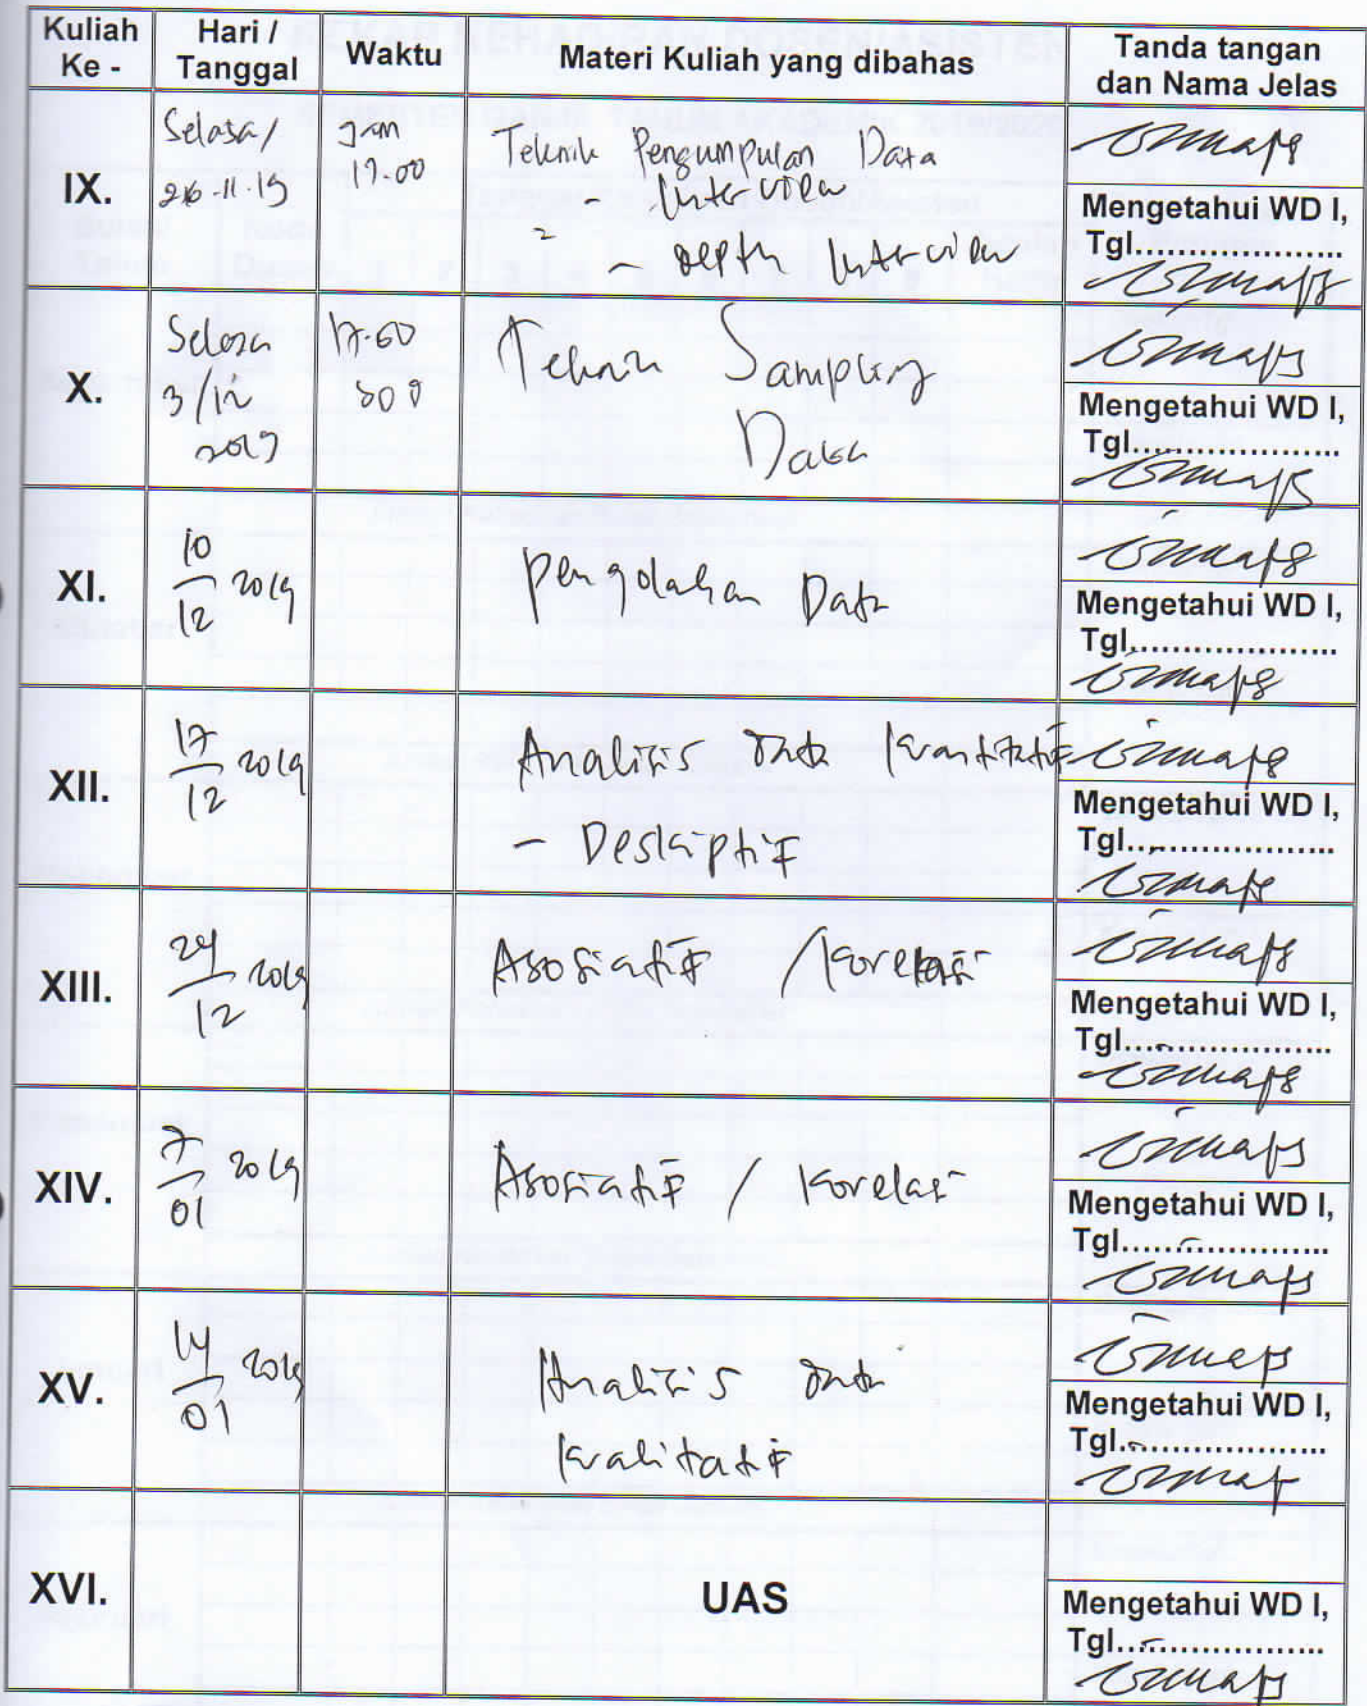 Kuliah Ke -
Hari / Tanggal
Waktu
Materi Kuliah yang dibahas
Tanda tangan dan Nama Jelas
IX.
Selasa /
26-11-19
Jam
17.00
Teknik Pengumpulan Data
- Interview
- Depth Interview
Mengetahui WD I,
Tgl....................
X.
Selasa
3/12
2019
Teknik Sampling
Data
Mengetahui WD I,
Tgl....................
XI.
10
12
2019
Pengolahan Data
Mengetahui WD I,
Tgl....................
XII.
17
12
2019
Analisis Data Kuantitatif
- Deskriptif
Mengetahui WD I,
Tgl....................
XIII.
24
12
2019
Asosiatif / Korelasi
Mengetahui WD I,
Tgl....................
XIV.
7
01
2019
Asosiatif / Korelasi
Mengetahui WD I,
Tgl....................
XV.
14
01
2019
Analisis Data
Kualitatif
Mengetahui WD I,
Tgl....................
XVI.
UAS
Mengetahui WD I,
Tgl....................